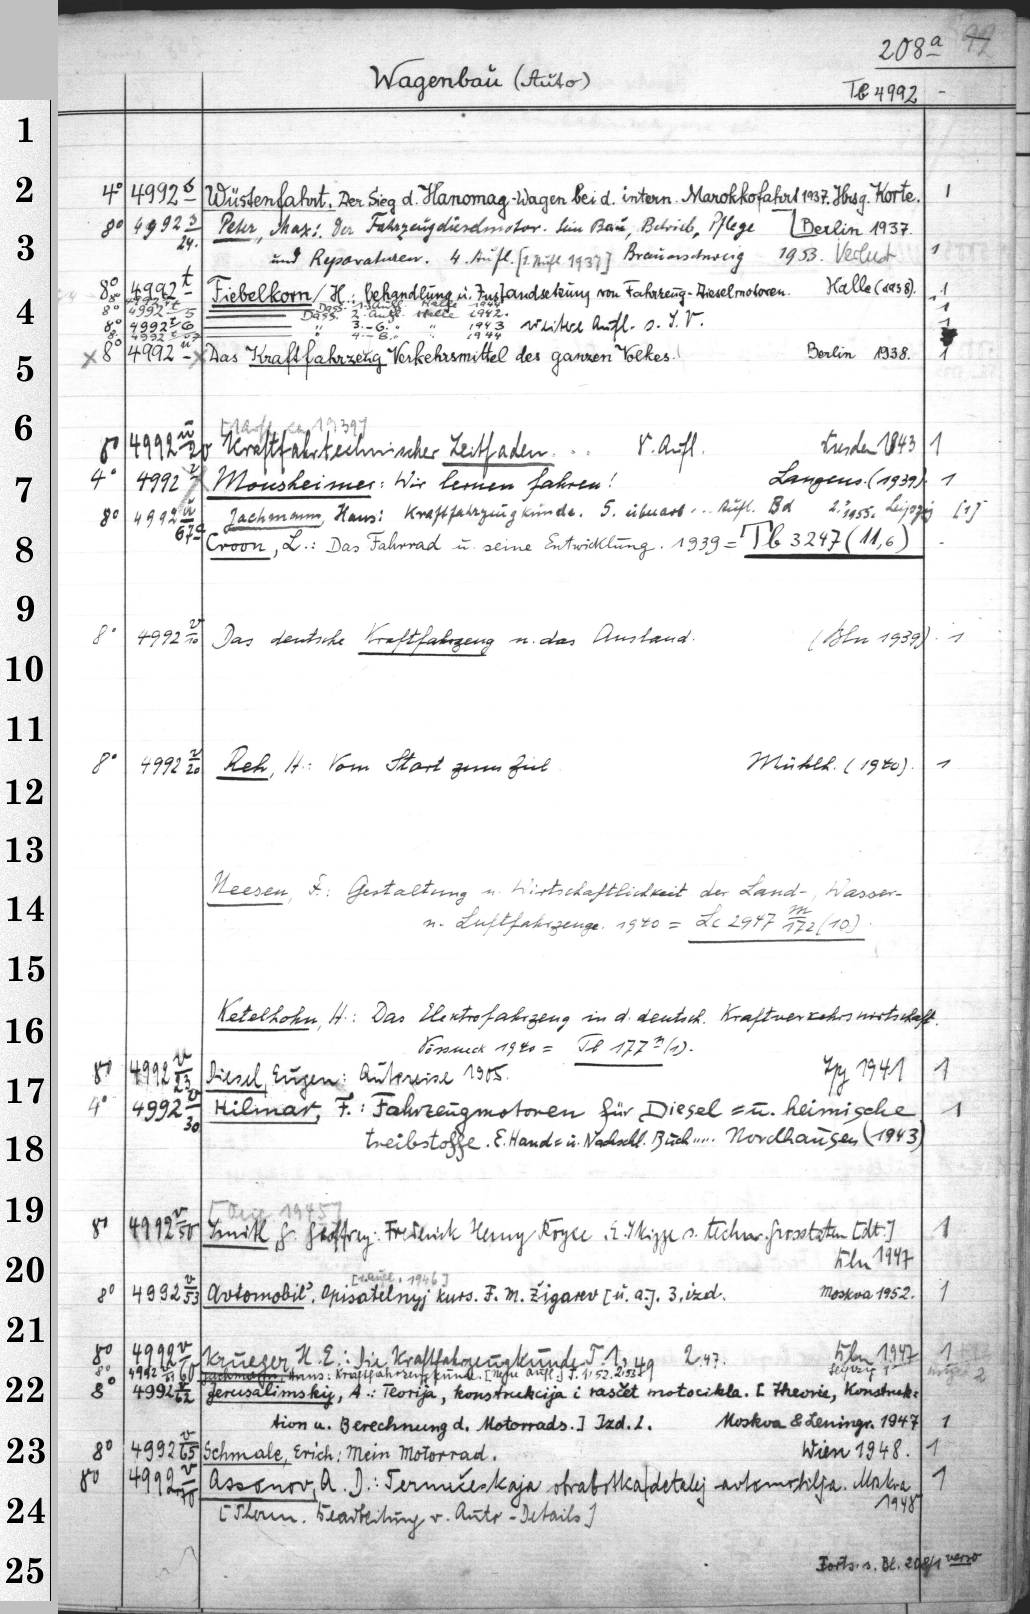 208a 99
Wagenbau (Auto)
Tb 4992 -
1
2
3
4
5
6
7
8
9
10
11
12
13
14
15
16
17
18
19
20
21
22
23
24
25
4° 4992 s Wüstenfahrt. Der Sieg d. Hanomag-Wagen bei d. intern. Marokkofahrt 1937. Hrsg. Korte. 1
Berlin 1937.
8° 4992 s/24. Peter, Max: Der Fahrzeugdieselmotor. Sein Bau, Betrieb, Pflege
und Reparaturen. 4. Aufl. [1. Aufl 1937] Braunschweig 1953. Verlust 1
8° 4992 t Fiebelkorn, H.: Behandlung u. Instandsetzung von Fahrzeug-Dieselmotoren. Halle (1938). 1
8° 4992 t/5 Dass. 2. Aufl. Halle 1942. 1
8° 4992 t/6 " 3.-6. " " 1943 weitere Aufl. s. I. V. 1
× 8° 4992 u × Das Kraftfahrzeug Verkehrsmittel des ganzen Volkes. Berlin 1938. 1
[1. Aufl. ca. 1939]
8° 4992 u/20 Kraftfahrtechnischer Leitfaden. .. V. Aufl. Dresden 1943 1
4° 4992 Monsheimer: Wir lernen fahren! Langens. (1939). 1
8° 4992 u/67a Jachmann, Hans: Kraftfahrzeugkunde. 5. überarb... Aufl. Bd 2. 1955. Leipzig [1]
Croon, L.: Das Fahrrad u. seine Entwicklung. 1939 = Tb 3247 (11,6) -
8° 4992 v/10 Das deutsche Kraftfahrzeug u. das Ausland. (Köln 1939). 1
8° 4992 v/20 Reh, H.: Vom Start zum Ziel Mühlh. (1940). 1
Neesen, F.: Gestaltung u. Wirtschaftlichkeit der Land-, Wasser-
u. Luftfahrzeuge. 1940 = Lc 2947 m/172 (10).
Ketelhohn, H.: Das Elektrofahrzeug in d. deutsch. Kraftverkehrswirtschaft.
Pössneck 1940 = Tb 177 m/(1).
8° 4992 v/23 Diesel, Eugen: Autoreise 1905. Lpg 1941 1
4° 4992 v/30 Hilmar, F.: Fahrzeugmotoren für Diesel= u. heimische
treibstoffe. E. Hand= u. Nachschl. Buch..... Nordhausen (1943) 1
8° 4992 v/50 Smith, G. Geoffrey: Frederick Henry Royce. E. Skizze s. techn. Grosstaten [dt.] 1
Köln 1947
[1. Aufl. 1946]
8° 4992 v/53 Avtomobil'. Opisatelnyj kurs. F. M. Žigarev [u. a.]. 3. izd. Moskva 1952. 1
8° 4992 v/60 Krueger, H. E.: Die Kraftfahrzeugkunde. T. 1. 49 2.47. Köln 1947 1
8° 4992 v/61 Jachmann, Hans: Kraftfahrzeugkunde. [Neue Aufl.] T. 1. 52. 2. 53 Leipzig
8° 4992 v/62 Jerusalimskij, A.: Teorija, konstrukcija i rasčët motocikla. [Theorie, Konstruk=
tion u. Berechnung d. Motorrads.] Izd. 2. Moskva & Leningr. 1947 1
8° 4992 v/65 Schmale, Erich: Mein Motorrad. Wien 1948. 1
8° 4992 v/70 Assonov, A. D.: Termičeskaja obrabotka detalej avtomobilja. Moskva 1
1948
[Therm. Bearbeitung v. Auto-Details]
Forts. s. Bl. 208/1 verso